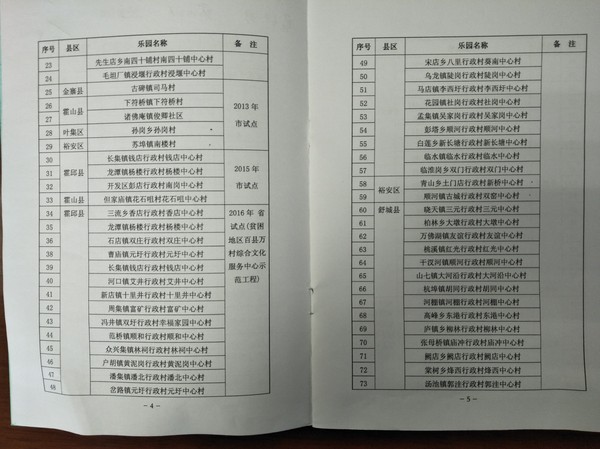 序号 县区 乐园名称 备 注
23 先生店乡南四十铺村南四十铺中心村
24 毛坦厂镇浸堰行政村浸堰中心村
25 金寨县 古碑镇司马村
26 霍山县 下符桥镇下符桥村 2013 年
27 诸佛庵镇俊卿社区 市试点
28 叶集区 孙岗乡孙岗村
29 裕安区 苏埠镇南楼村
30 霍邱县 长集镇钱店行政村钱店中心村
31 龙潭镇杨楼行政村杨楼中心村 2015 年
32 开发区彭店行政村南岗中心村 市试点
33 霍山县 但家庙镇花石咀村花石咀中心村
34 霍邱县 三流乡香店行政村香店中心村 2016 年 省
35 龙潭镇杨楼行政村杨楼中心村 试点(贫困
36 石店镇双庄行政村双庄中心村 地区百县万
37 曹庙镇元圩行政村元圩中心村 村综合文化
38 长集镇钱店行政村钱店中心村 服务中心示
39 河口镇艾井行政村艾井中心村 范工程)
40
41 新店镇十里井行政村十里井中心村
42 周集镇富矿行政村富矿中心村
43 冯井镇双圩行政村幸福家园中心村
44 范桥镇顺和行政村顺和中心村
45 众兴集镇林祠行政村林祠中心村
46 户胡镇黄泥岗行政村黄泥岗中心村
47 潘集镇潘北行政村潘北中心村
48 岔路镇元圩行政村元圩中心村
－4－
序号 县区 乐园名称 备 注
49 宋店乡八里行政村葵南中心村
50 乌龙镇陡岗行政村陡岗中心村
51 马店镇李西圩行政村李西圩中心村
52 花园镇杜岗行政村杜岗中心村
53 孟集镇吴家岗行政村吴家岗中心村
54 彭塔乡顺河行政村顺河中心村
55 白莲乡新长塘行政村新长塘中心村
56 临水镇临水行政村临水中心村
57 临淮岗乡双门行政村双门中心村
58 裕安区 青山乡土门店行政村新桥中心村
59 顺河镇古城行政村双窑中心村
60 舒城县 晓天镇三元行政村三元中心村
61 柏林乡大墩行政村大墩中心村
62 万佛湖镇友谊行政村友谊中心村
63 桃溪镇红光行政村红光中心村
64 干汊河镇顺河行政村顺河中心村
65 山七镇大河沿行政村大河沿中心村
66 杭埠镇胡同行政村胡同中心村
67 河棚镇河棚行政村河棚中心村
68 高峰乡东港行政村东港中心村
69 庐镇乡柳林行政村柳林中心村
70 张母桥镇庙冲行政村庙冲中心村
71 阙店乡阙店行政村阙店中心村
72 棠树乡烽西行政村西烽中心村
73 汤池镇郭洼行政村郭洼中心村
－5－